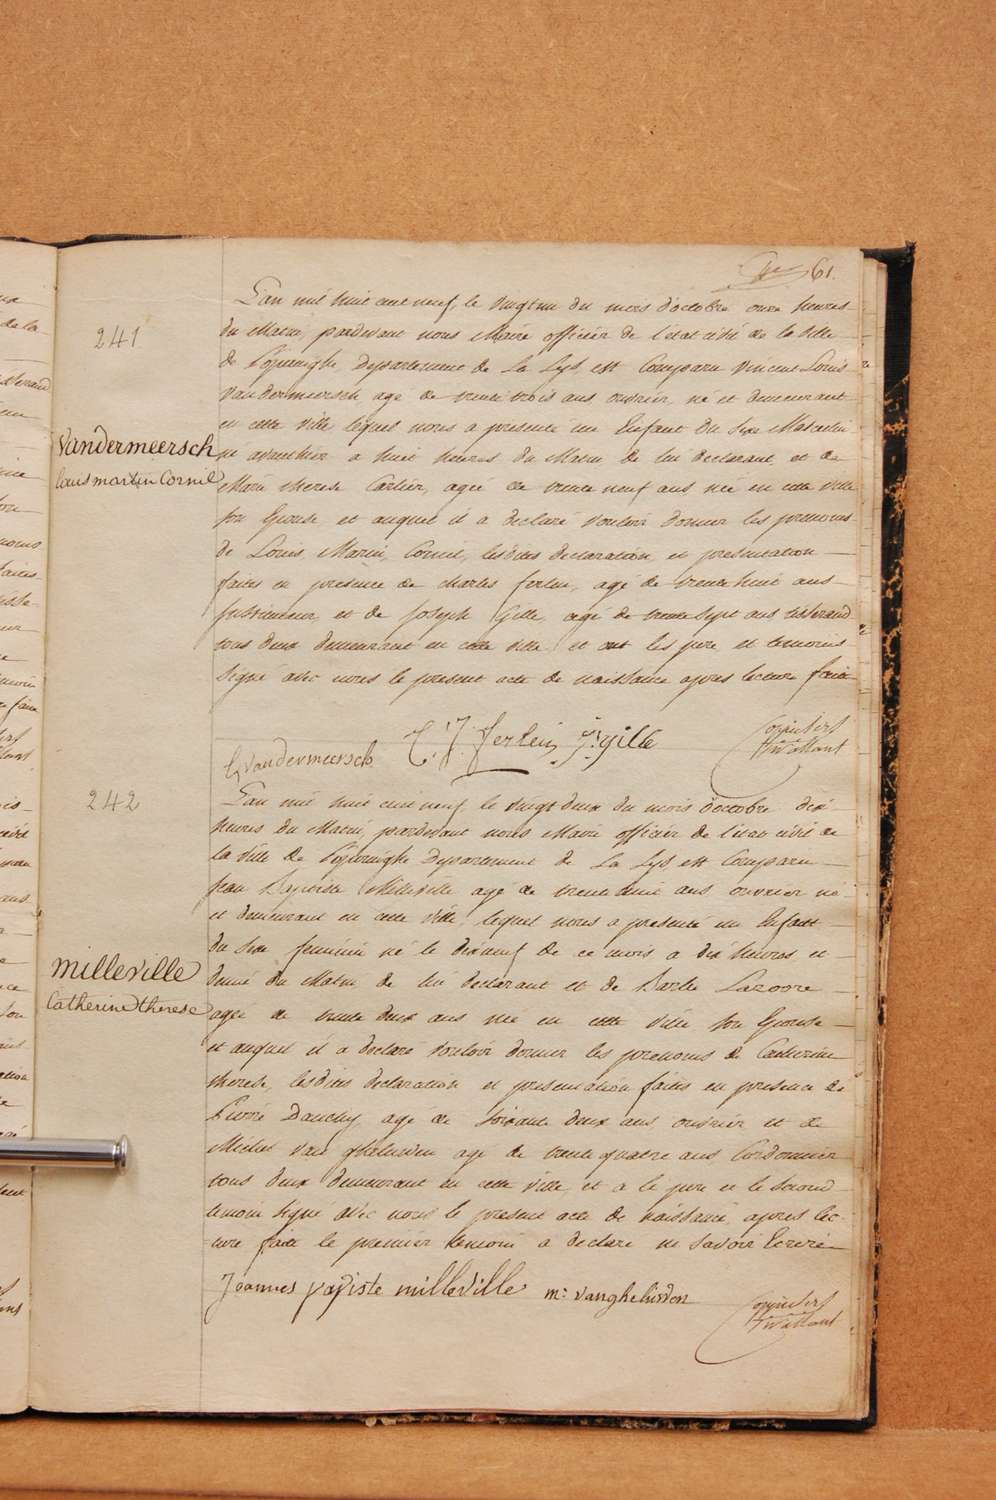 61.
241
Vandermeersch
Louis martin Cornil
L'an mil huit cent neuf, le vingt un du mois d'octobre onze heures
du Matin, pardevant nous Maire officier de l'état civil de la ville
de Poperinghe, Departement de La Lys, est Comparu Vincent Louis
Vandermeersch agé de trente trois ans, ouvrier, né et demeurant
en cette ville, lequel nous a presenté un Enfant du sexe Masculin
né avanthier a huit heures du Matin de lui declarant, et de
Marie therese Cartier, agée de trente neuf ans née en cette ville
son Epouse, et auquel il a declaré vouloir donner les prenoms
de Louis, Martin, Cornil, lesdites declaration, et presentation
faites en presence de charles ferlin, agé de trente huit ans
, et de Joseph Gille, agé de trente Sept ans tisserand
tous deux demeurant en cette ville, et ont les pere, et temoins
Signé avec nous le present acte de naissance apres lecture faite
Vandermeersch C. J. ferlein J. gille
242
milleville
Catherine therese
L'an mil huit cent neuf le vingt deux du mois d'octobre dix
heures du Matin, pardevant nous Maire officier de l'état civil de
la ville de Poperinghe Departement de La Lys, est Comparu
Jean Baptiste Milleville agé de trente ans ouvrier né
et demeurant en cette ville, lequel nous a presenté un Enfant
du sexe feminin né le dixneuf de ce mois a dix heures et
demie du Matin de lui declarant et de Barbe Lazoore
agée de trente deux ans née en cette ville son Epouse
et auquel il a declaré vouloir donner les prenoms de Catherine
therese, lesdites declaration et presentation faites en presence de
Pierre Dauchy agé de soixante deux ans ouvrier et de
Michel Van ghelusden agé de trente quatre ans, Cordonnier
tous deux demeurant en cette ville, et a le pere et le second
temoin signé avec nous le present acte de naissance, apres lec-
ture faite le premier temoin a declaré ne savoir Ecrire
Joannes baptiste milleville m: vanghelusden